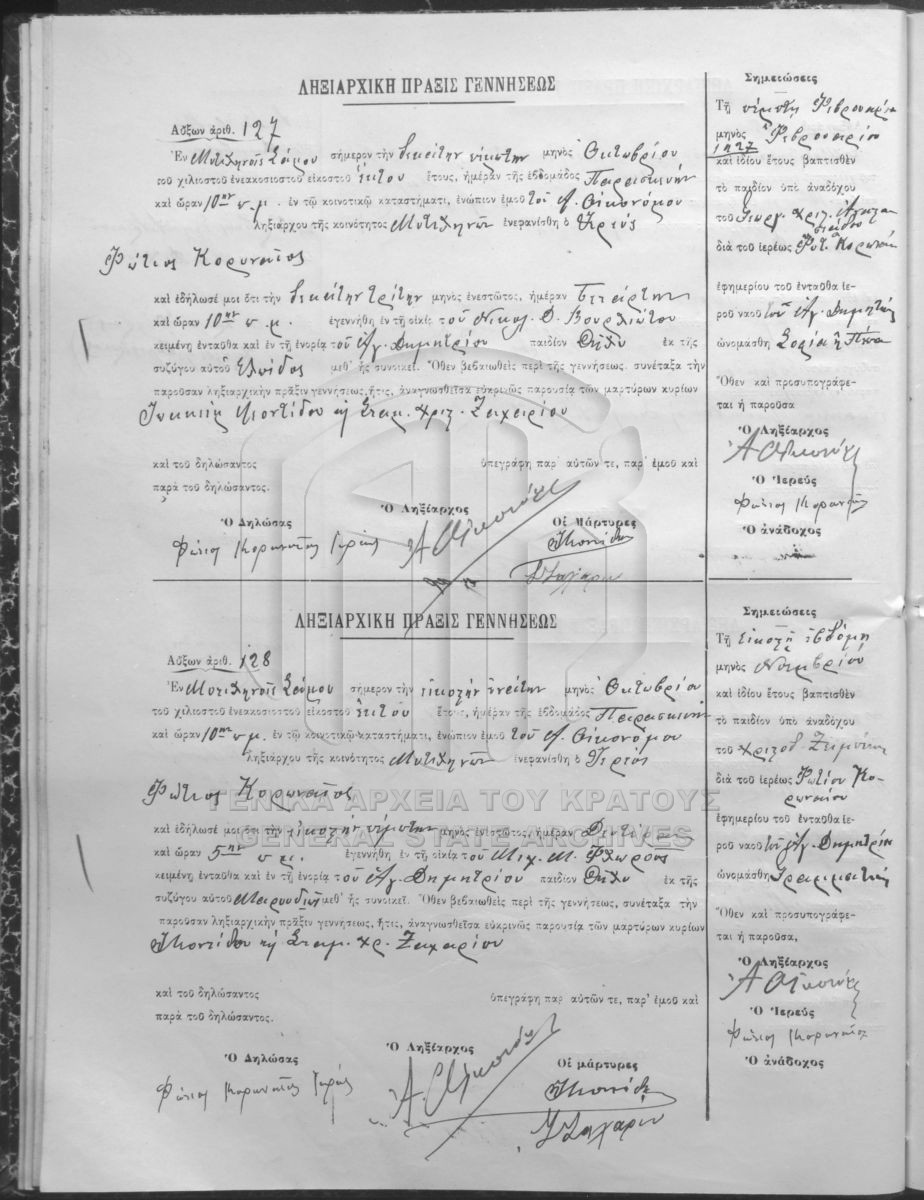 ΛΗΞΙΑΡΧΙΚΗ ΠΡΑΞΙΣ ΓΕΝΝΗΣΕΩΣ
Αὔξων ἀριθ. 127
Ἐν Μυτιληνιοῖς Σάμου σήμερον τὴν δεκάτην πέμπτην μηνὸς Ὀκτωβρίου
τοῦ χιλιοστοῦ ἐνεακοσιοστοῦ εἰκοστοῦ ἕκτου ἔτους, ἡμέραν τῆς ἑβδομάδος Παρασκευὴν
καὶ ὥραν 10ην π.μ. ἐν τῷ κοινοτικῷ καταστήματι, ἐνώπιον ἐμοῦ τοῦ Α. Οἰκονόμου
ληξιάρχου τῆς κοινότητος Μυτιληνιῶν ἐνεφανίσθη ὁ Ἱερεὺς
Φώτιος Κορωναῖος
καὶ ἐδήλωσέ μοι ὅτι τὴν δεκάτην τρίτην μηνὸς ἐνεστῶτος, ἡμέραν Τετάρτην
καὶ ὥραν 10ην π.μ. ἐγεννήθη ἐν τῇ οἰκίᾳ τοῦ Νικολ. Δ. Βουρλιώτου
κειμένῃ ἐνταῦθα καὶ ἐν τῇ ἐνορίᾳ τοῦ Ἁγ. Δημητρίου παιδίον θῆλυ ἐκ τῆς
συζύγου αὐτοῦ Ἐλπίδος μεθ' ἧς συνοικεῖ. Ὅθεν βεβαιωθεὶς περὶ τῆς γεννήσεως, συνέταξα τὴν
παροῦσαν ληξιαρχικὴν πρᾶξιν γεννήσεως, ἥτις, ἀναγνωσθεῖσα εὐκρινῶς παρουσίᾳ τῶν μαρτύρων κυρίων
καὶ Σταμ. Χριζ. Ζαχαρίου
καὶ τοῦ δηλώσαντος ὑπεγράφη παρ' αὐτῶν τε, παρ' ἐμοῦ καὶ
παρὰ τοῦ δηλώσαντος.
Ὁ Δηλώσας Ὁ Ληξίαρχος Οἱ Μάρτυρες
Φώτιος Κορωναῖος Ἱερεύς Α Οἰκονόμου
Σ Ζαχαρίου
Σημειώσεις
Τῇ πέμπτῃ Φεβρουαρίου
μηνὸς Φεβρουαρίου
1927
καὶ ἰδίου ἔτους βαπτισθὲν
τὸ παιδίον ὑπὸ ἀναδόχου
τοῦ Γεωργ. Χριζ.
διὰ τοῦ ἱερέως Φωτ. Κορωναίου
ἐφημερίου τοῦ ἐνταῦθα ἱε-
ροῦ ναοῦ τοῦ Ἁγ. Δημητρίου
ὠνομάσθη Σοφία
Ὅθεν καὶ προσυπογράφε-
ται ἡ παροῦσα
Ὁ Ληξίαρχος
Α Οἰκονόμου
Ὁ Ἱερεύς
Φώτιος Κορωναῖος
Ὁ ἀνάδοχος
ΛΗΞΙΑΡΧΙΚΗ ΠΡΑΞΙΣ ΓΕΝΝΗΣΕΩΣ
Αὔξων ἀριθ. 128
Ἐν Μυτιληνιοῖς Σάμου σήμερον τὴν εἰκοστὴν ἐνάτην μηνὸς Ὀκτωβρίου
τοῦ χιλιοστοῦ ἐνεακοσιοστοῦ εἰκοστοῦ ἕκτου ἔτους, ἡμέραν τῆς ἑβδομάδος Παρασκευὴν
καὶ ὥραν 10ην π.μ. ἐν τῷ κοινοτικῷ καταστήματι, ἐνώπιον ἐμοῦ τοῦ Α. Οἰκονόμου
ληξιάρχου τῆς κοινότητος Μυτιληνιῶν ἐνεφανίσθη ὁ Ἱερεὺς
Φώτιος Κορωναῖος
καὶ ἐδήλωσέ μοι ὅτι τὴν εἰκοστὴν πέμπτην μηνὸς ἐνεστῶτος, ἡμέραν Δευτέραν
καὶ ὥραν 5ην π.μ. ἐγεννήθη ἐν τῇ οἰκίᾳ τοῦ Μιχ. Μ. Φλωροῦ
κειμένῃ ἐνταῦθα καὶ ἐν τῇ ἐνορίᾳ τοῦ Ἁγ. Δημητρίου παιδίον θῆλυ ἐκ τῆς
συζύγου αὐτοῦ Μαρουδιῶς μεθ' ἧς συνοικεῖ. Ὅθεν βεβαιωθεὶς περὶ τῆς γεννήσεως, συνέταξα τὴν
παροῦσαν ληξιαρχικὴν πρᾶξιν γεννήσεως, ἥτις, ἀναγνωσθεῖσα εὐκρινῶς παρουσίᾳ τῶν μαρτύρων κυρίων
καὶ Σταμ. Χρ. Ζαχαρίου
καὶ τοῦ δηλώσαντος ὑπεγράφη παρ αὐτῶν τε, παρ' ἐμοῦ καὶ
παρὰ τοῦ δηλώσαντος.
Ὁ Δηλώσας Ὁ Ληξίαρχος Οἱ μάρτυρες
Φώτιος Κορωναῖος Ἱερεύς Α. Οἰκονόμου
Σ Ζαχαρίου
Σημειώσεις
Τῇ εἰκοστῇ ἑβδόμῃ
μηνὸς Νοεμβρίου
καὶ ἰδίου ἔτους βαπτισθὲν
τὸ παιδίον ὑπὸ ἀναδόχου
τοῦ Χριζοδ.
διὰ τοῦ ἱερέως Φωτίου Κο-
ρωναίου
ἐφημερίου τοῦ ἐνταῦθα ἱε-
ροῦ ναοῦ τοῦ Ἁγ. Δημητρίου
ὠνομάσθη Γραμματικὴ
Ὅθεν καὶ προσυπογράφε-
ται ἡ παροῦσα,
Ὁ Ληξίαρχος
Α Οἰκονόμου
Ὁ Ἱερεύς
Φώτιος Κορωναῖος
Ὁ ἀνάδοχος
ΓΕΝΙΚΑ ΑΡΧΕΙΑ ΤΟΥ ΚΡΑΤΟΥΣ
GENERAL STATE ARCHIVES